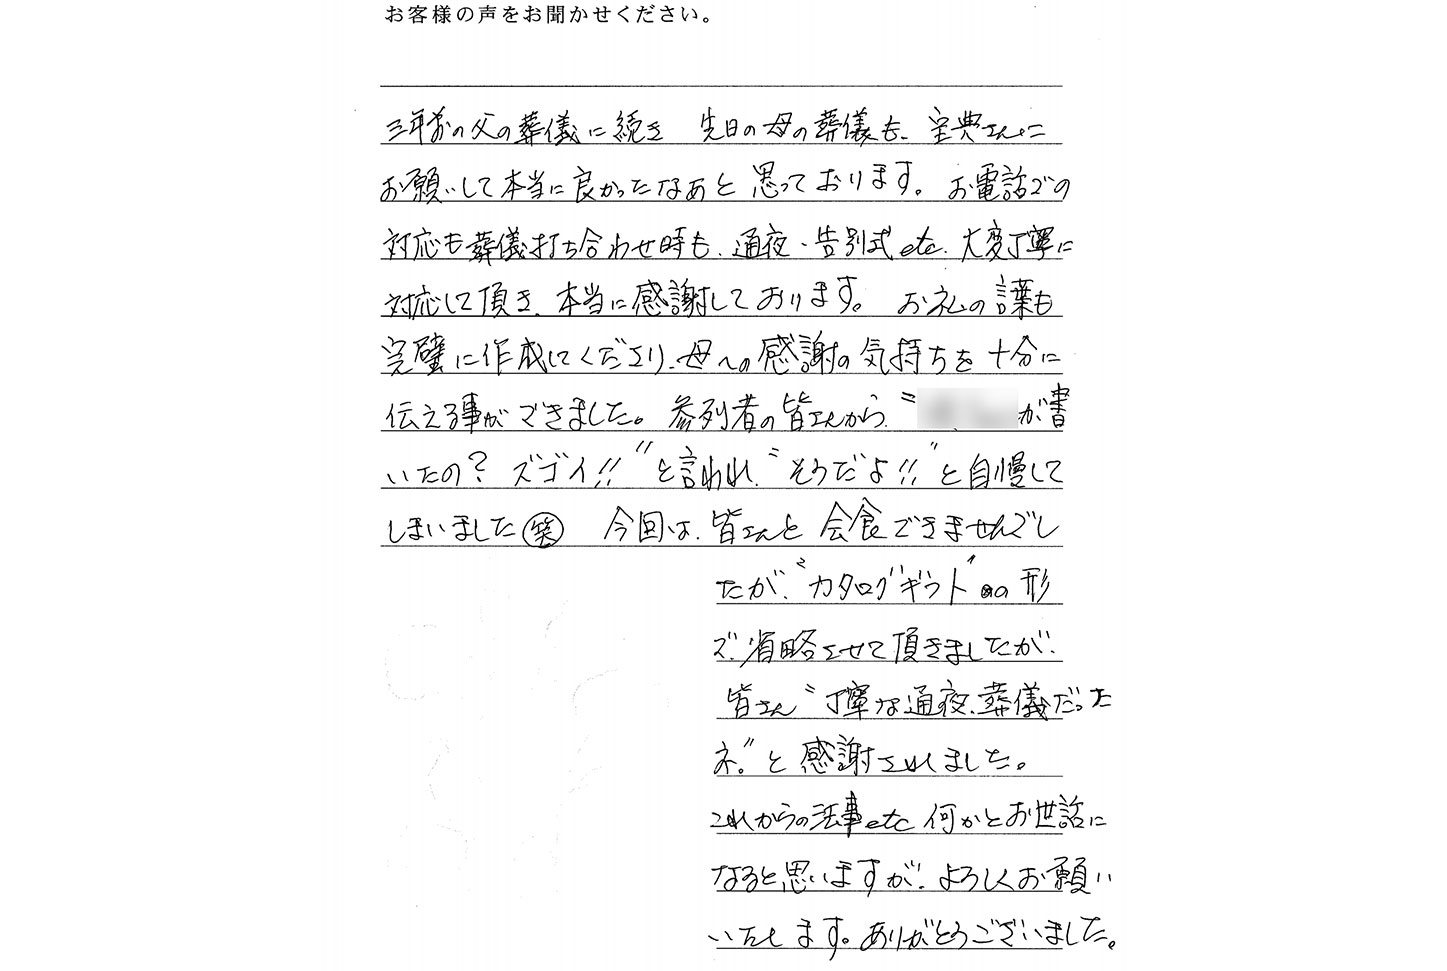 お客様の声をお聞かせください。
三年前の父の葬儀に続き 先日の母の葬儀も、宝典さんに
お願いして本当に良かったなあと思っております。お電話での
対応も葬儀打ち合わせ時も、通夜・告別式etc、大変丁寧に
対応して頂き、本当に感謝しております。 お礼の言葉も
完璧に作成してくださり、母への感謝の気持ちを十分に
伝える事ができました。参列者の皆さんから、〝が書
いたの? スゴイ!!〞と言われ、〝そうだよ!!〞と自慢して
しまいました㊗笑 今回は、皆さんと会食できませんでし
たが、〝カタログギフト〞の形
で、省略させて頂きましたが、
皆さん〝丁寧な通夜、葬儀だった
ネ。〞と感謝されました。
これからの法事etc何かとお世話に
なると思いますが、よろしくお願い
いたします。ありがとうございました。